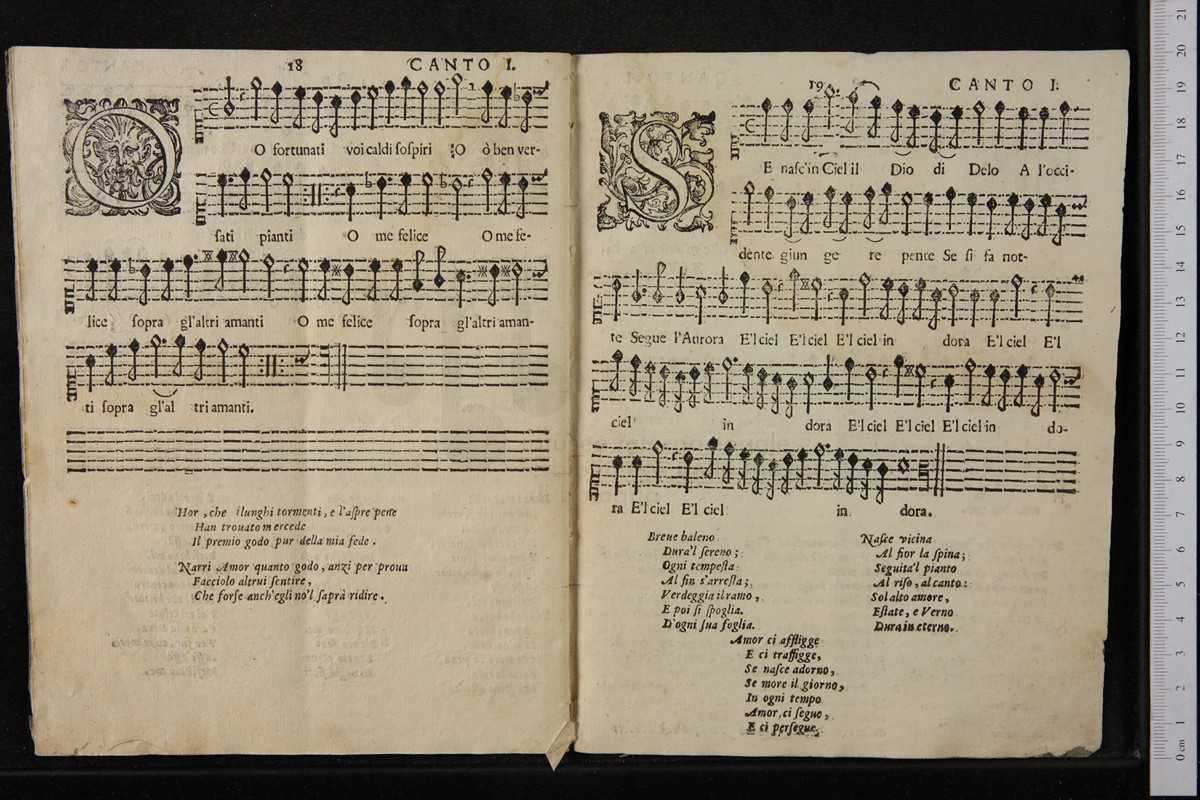 18 CANTO I.
O fortunati voi caldi ſoſpiri O ò ben ver-
ſati pianti O me felice O me fe-
lice ſopra gl'altri amanti O me felice ſopra gl'altri aman-
ti ſopra gl'al tri amanti.
Hor, che i lunghi tormenti, e l'aſpre pene
Han trouato mercede
Il premio godo pur della mia fede.
Narri Amor quanto godo, anzi per proua
Facciolo altrui ſentire,
Che forſe anch'egli no'l ſaprà ridire.
19 CANTO I.
SE naſc'in Ciel il Dio di Delo A l'occi-
dente giun ge re pente Se ſi fa not-
te Segue l'Aurora E'l ciel E'l ciel E'l ciel in dora E'l ciel E'l
ciel in dora E'l ciel E'l ciel E'l ciel in do-
ra E'l ciel E'l ciel in dora.
Breue baleno
Dura'l ſereno;
Ogni tempeſta
Al fin s'arreſta;
Verdeggia il ramo,
E poi ſi ſpoglia.
D'ogni ſua foglia.
Naſce vicina
Al fior la ſpina;
Seguita'l pianto
Al riſo, al canto:
Sol alto amore,
Eſtate, e Verno
Dura in eterno.
Amor ci affligge
E ci traffigge,
Se naſce adorno,
Se more il giorno,
In ogni tempo
Amor, ci ſegue,
E ci perſegue.
0 cm 1 2 3 4 5 6 7 8 9 10 11 12 13 14 15 16 17 18 19 20 21